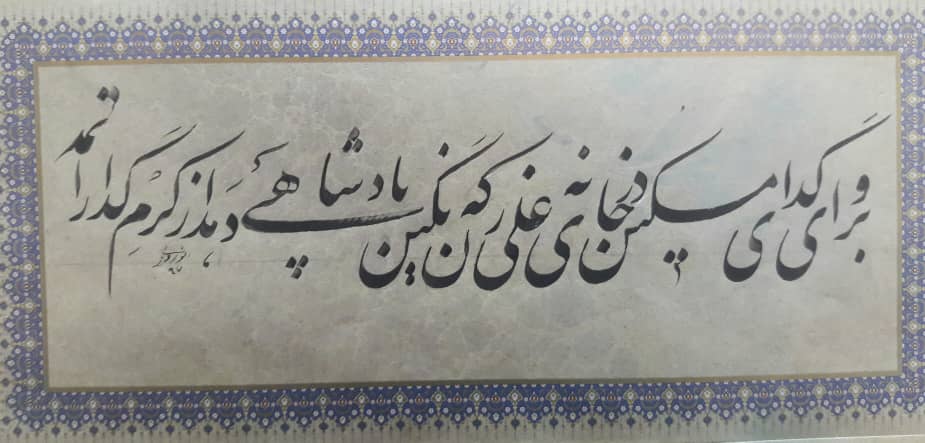 برو ای گدای مسکین در خانه ی علی زن که نگین پادشاهی دهد از کرم گدا را